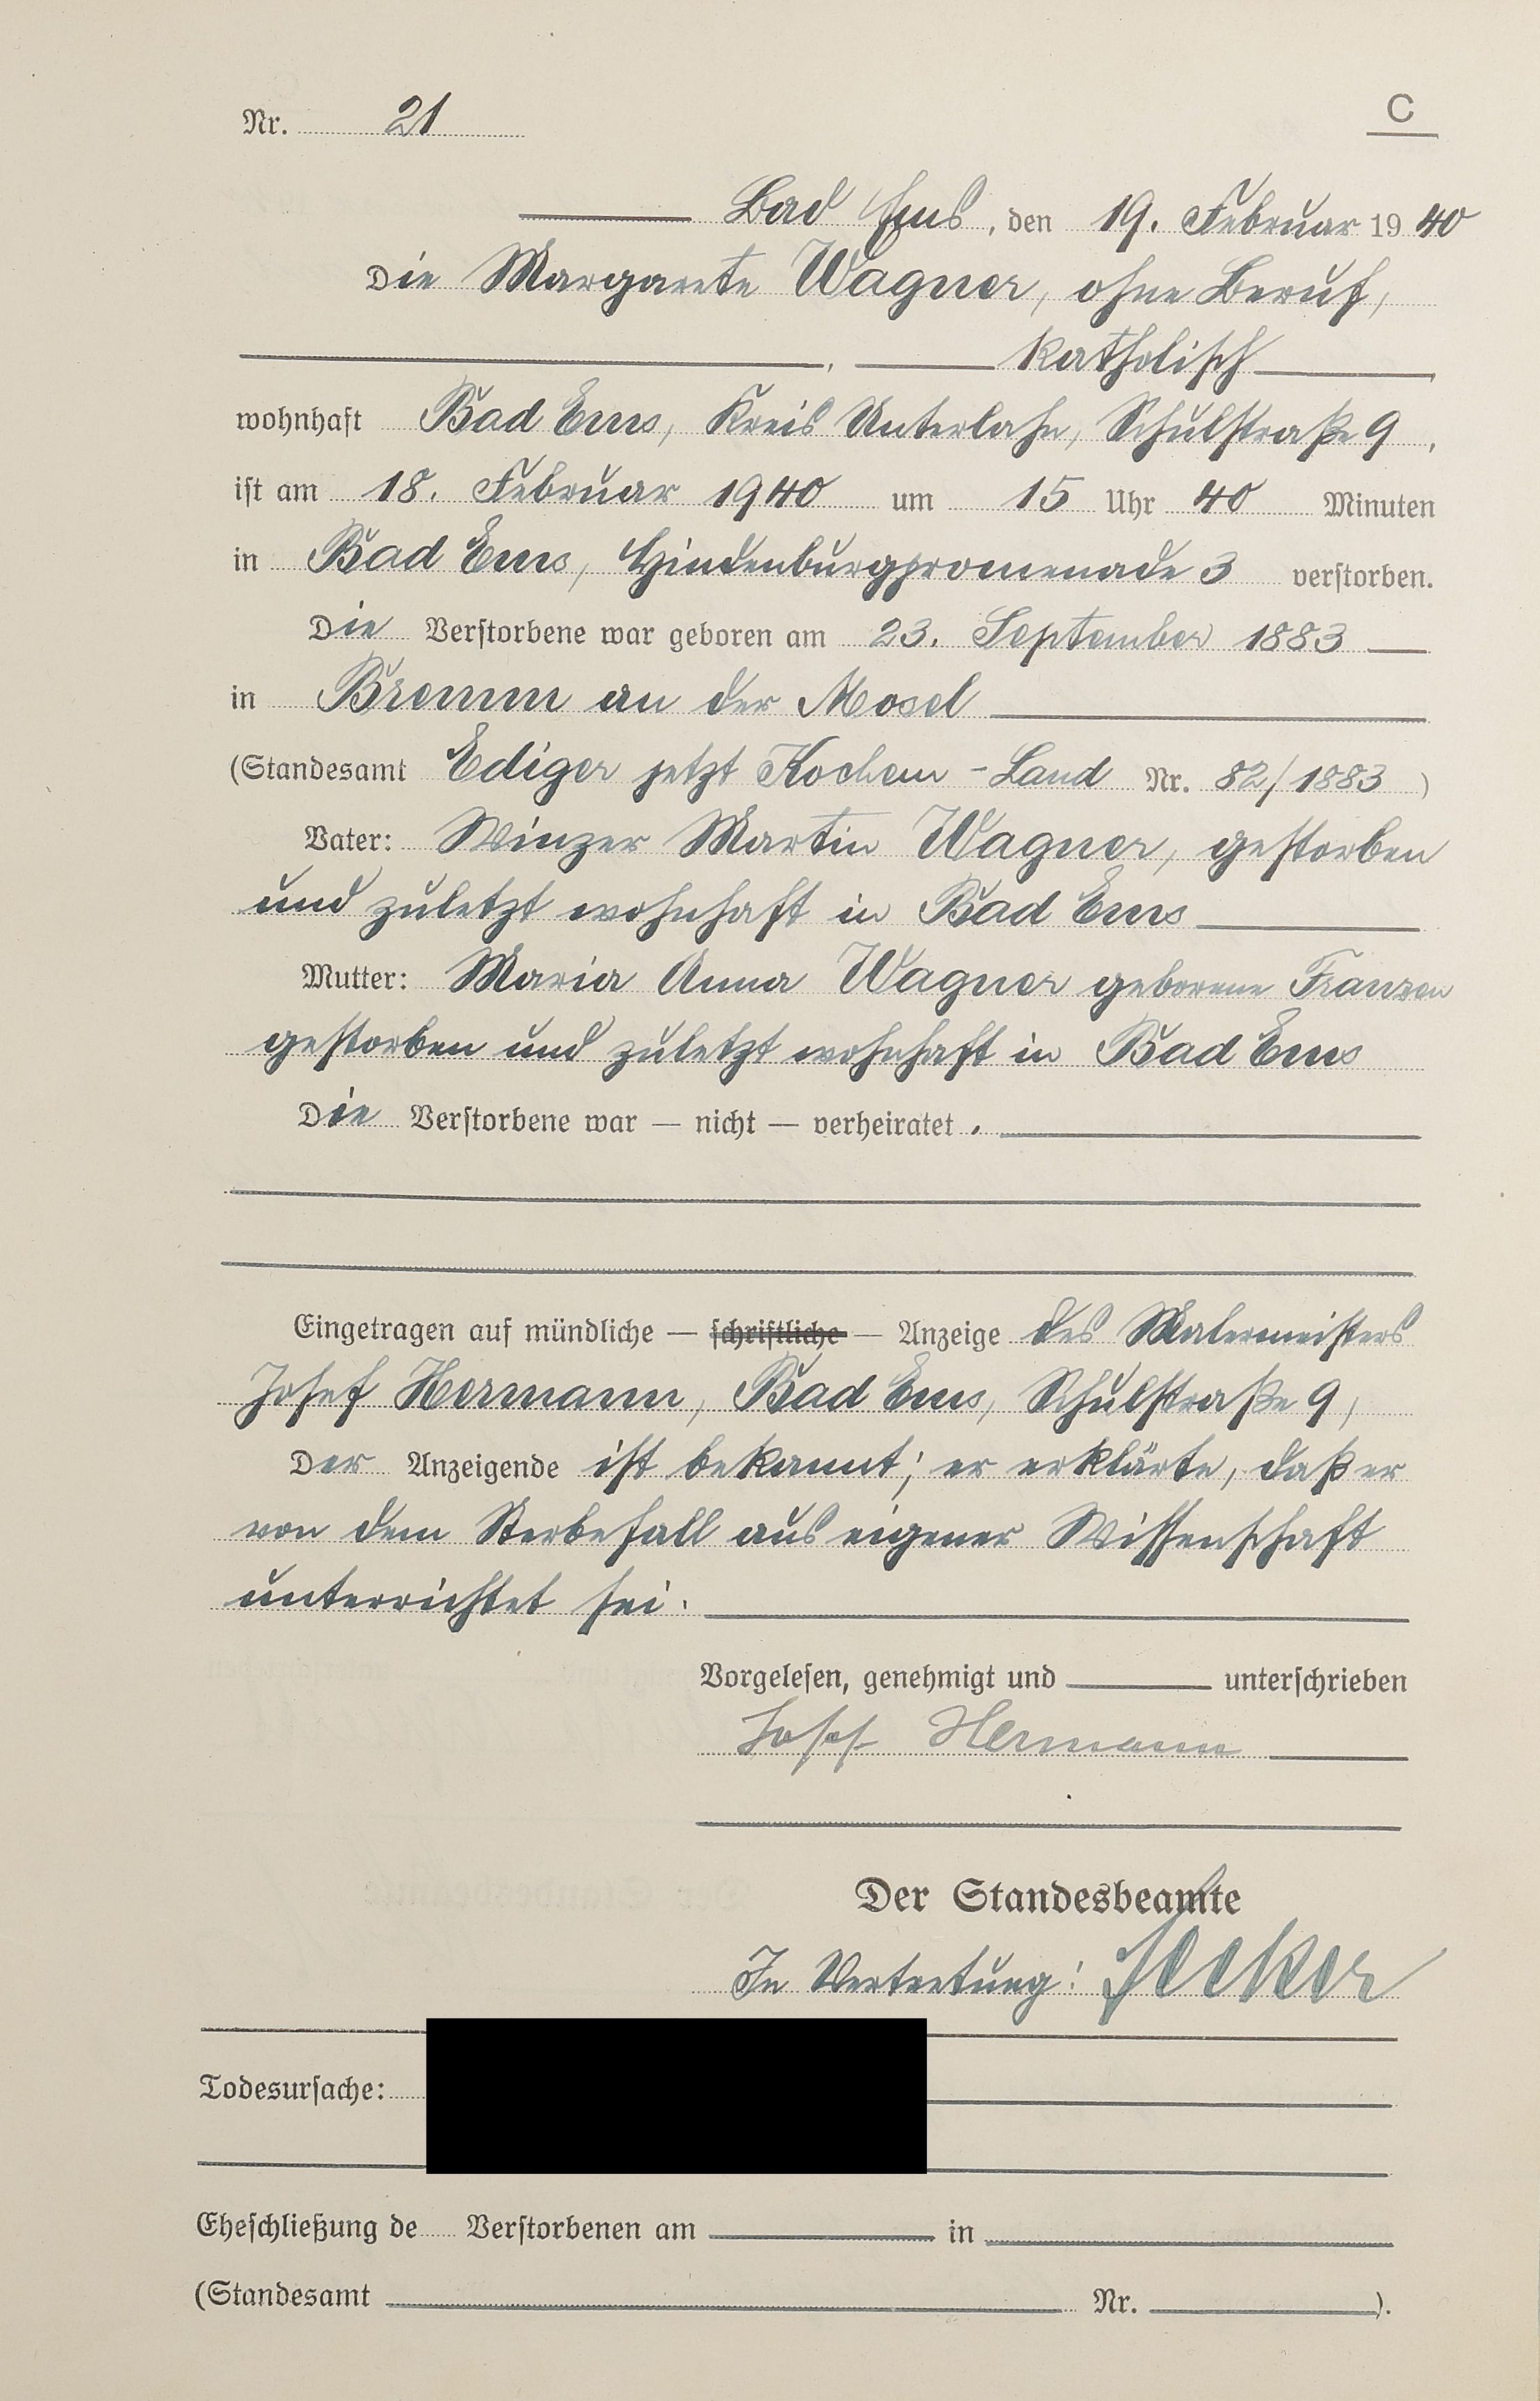 Nr. 21
C
Bad Ems, den 19. Februar 1940
Die Margarete Wagner, ohne Beruf,
katholisch
wohnhaft Bad Ems, Kreis Unterlahn, Schulstraße 9,
ist am 18. Februar 1940 um 15 Uhr 40 Minuten
in Bad Ems, Hindenburgpromenade 3 verstorben.
Die Verstorbene war geboren am 23. September 1883
in Bremm an der Mosel
(Standesamt Ediger jetzt Kochem-Land Nr. 82/1883)
Vater: Winzer Martin Wagner, gestorben
und zuletzt wohnhaft in Bad Ems
Mutter: Maria Anna Wagner geborene Franzen
gestorben und zuletzt wohnhaft in Bad Ems
Die Verstorbene war — nicht — verheiratet.
Eingetragen auf mündliche — schriftliche — Anzeige des Malermeisters
Josef Hermann, Bad Ems, Schulstraße 9,
Der Anzeigende ist bekannt; er erklärte, daß er
von dem Sterbefall aus eigener Wissenschaft
unterrichtet sei.
Vorgelesen, genehmigt und unterschrieben
Josef Hermann
Der Standesbeamte
In Vertretung:
Todesursache:
Eheschließung de Verstorbenen am in
(Standesamt Nr. ).